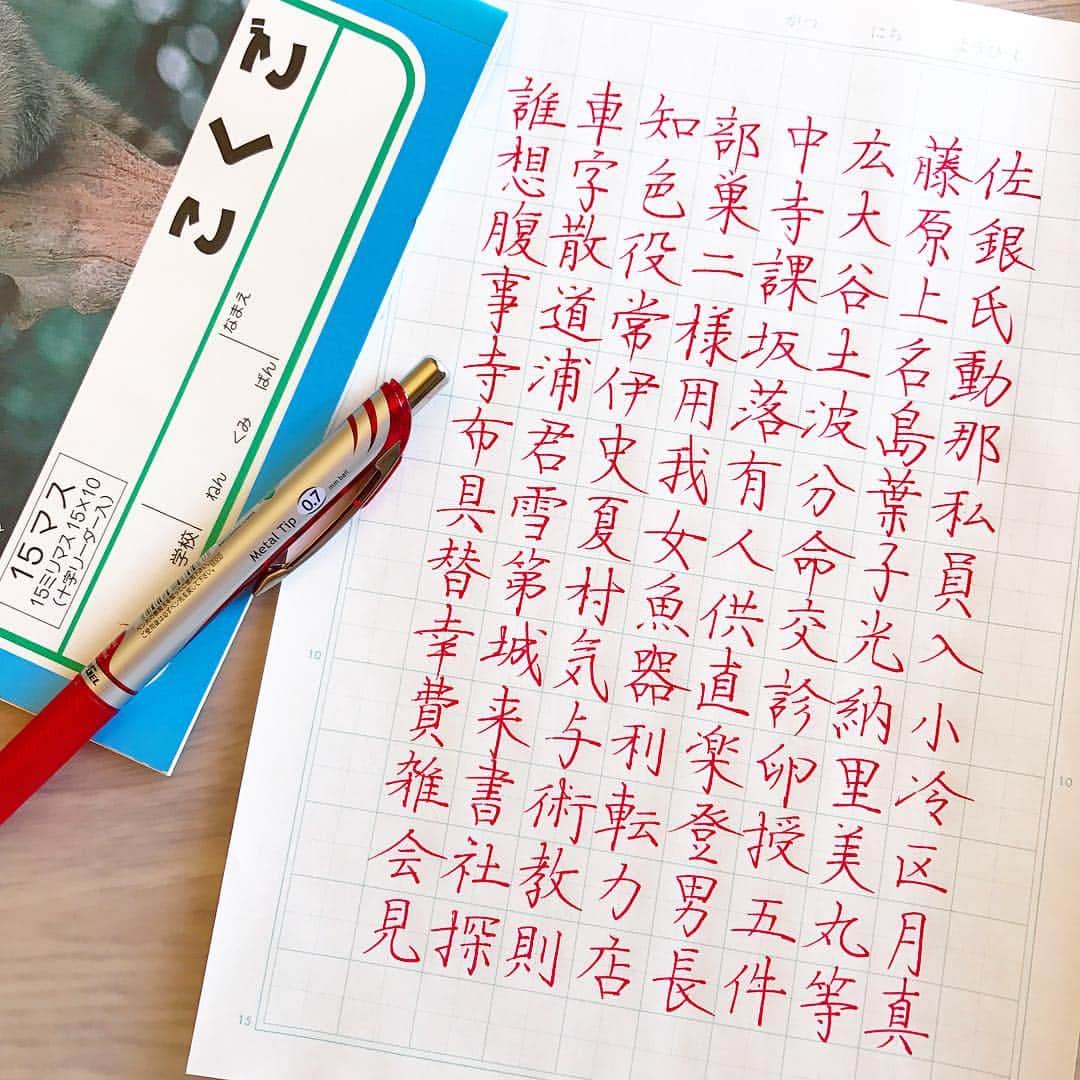 こくご
なまえ
学校 ねん くみ ばん
15マス
15ミリマス15×10
(十字リーダー入)
Metal Tip 0.7 mm ball
がつ にち
佐銀氏動那私員入小冷区月真
藤原上名島葉子光納里美丸等
広大谷土波分命交診卵授五件
中寺課坂落有人供直楽登男長
部巣二様用我女魚器利転力店
知色役常伊史夏村気与術教則
車字散道浦君雪第城来書社探
誰想腹事寺布具替幸費雑会見
10
10
15